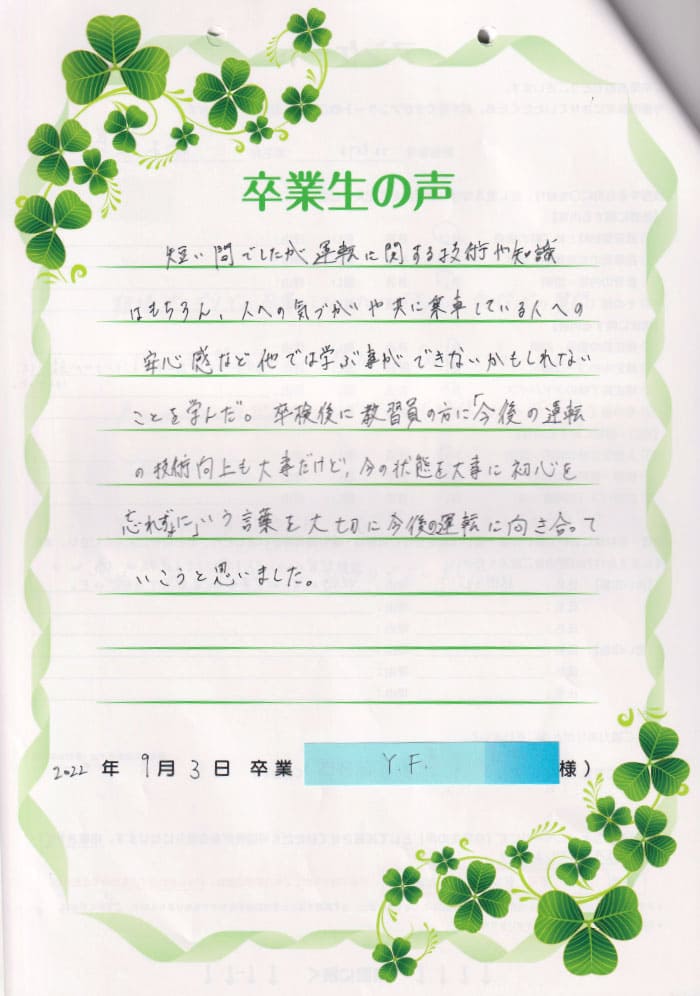 卒業生の声
短い間でしたが運転に関する技術や知識
はもちろん、人への気づかいや共に乗車している人への
安心感など他では学ぶ事ができないかもしれない
ことを学んだ。卒検後に教習員の方に「今後の運転
の技術向上も大事だけど、今の状態を大事に初心を
忘れずに」いう言葉を大切に今後の運転に向き合って
いこうと思いました。
2022年 9月3日 卒業 Y.F. 様）